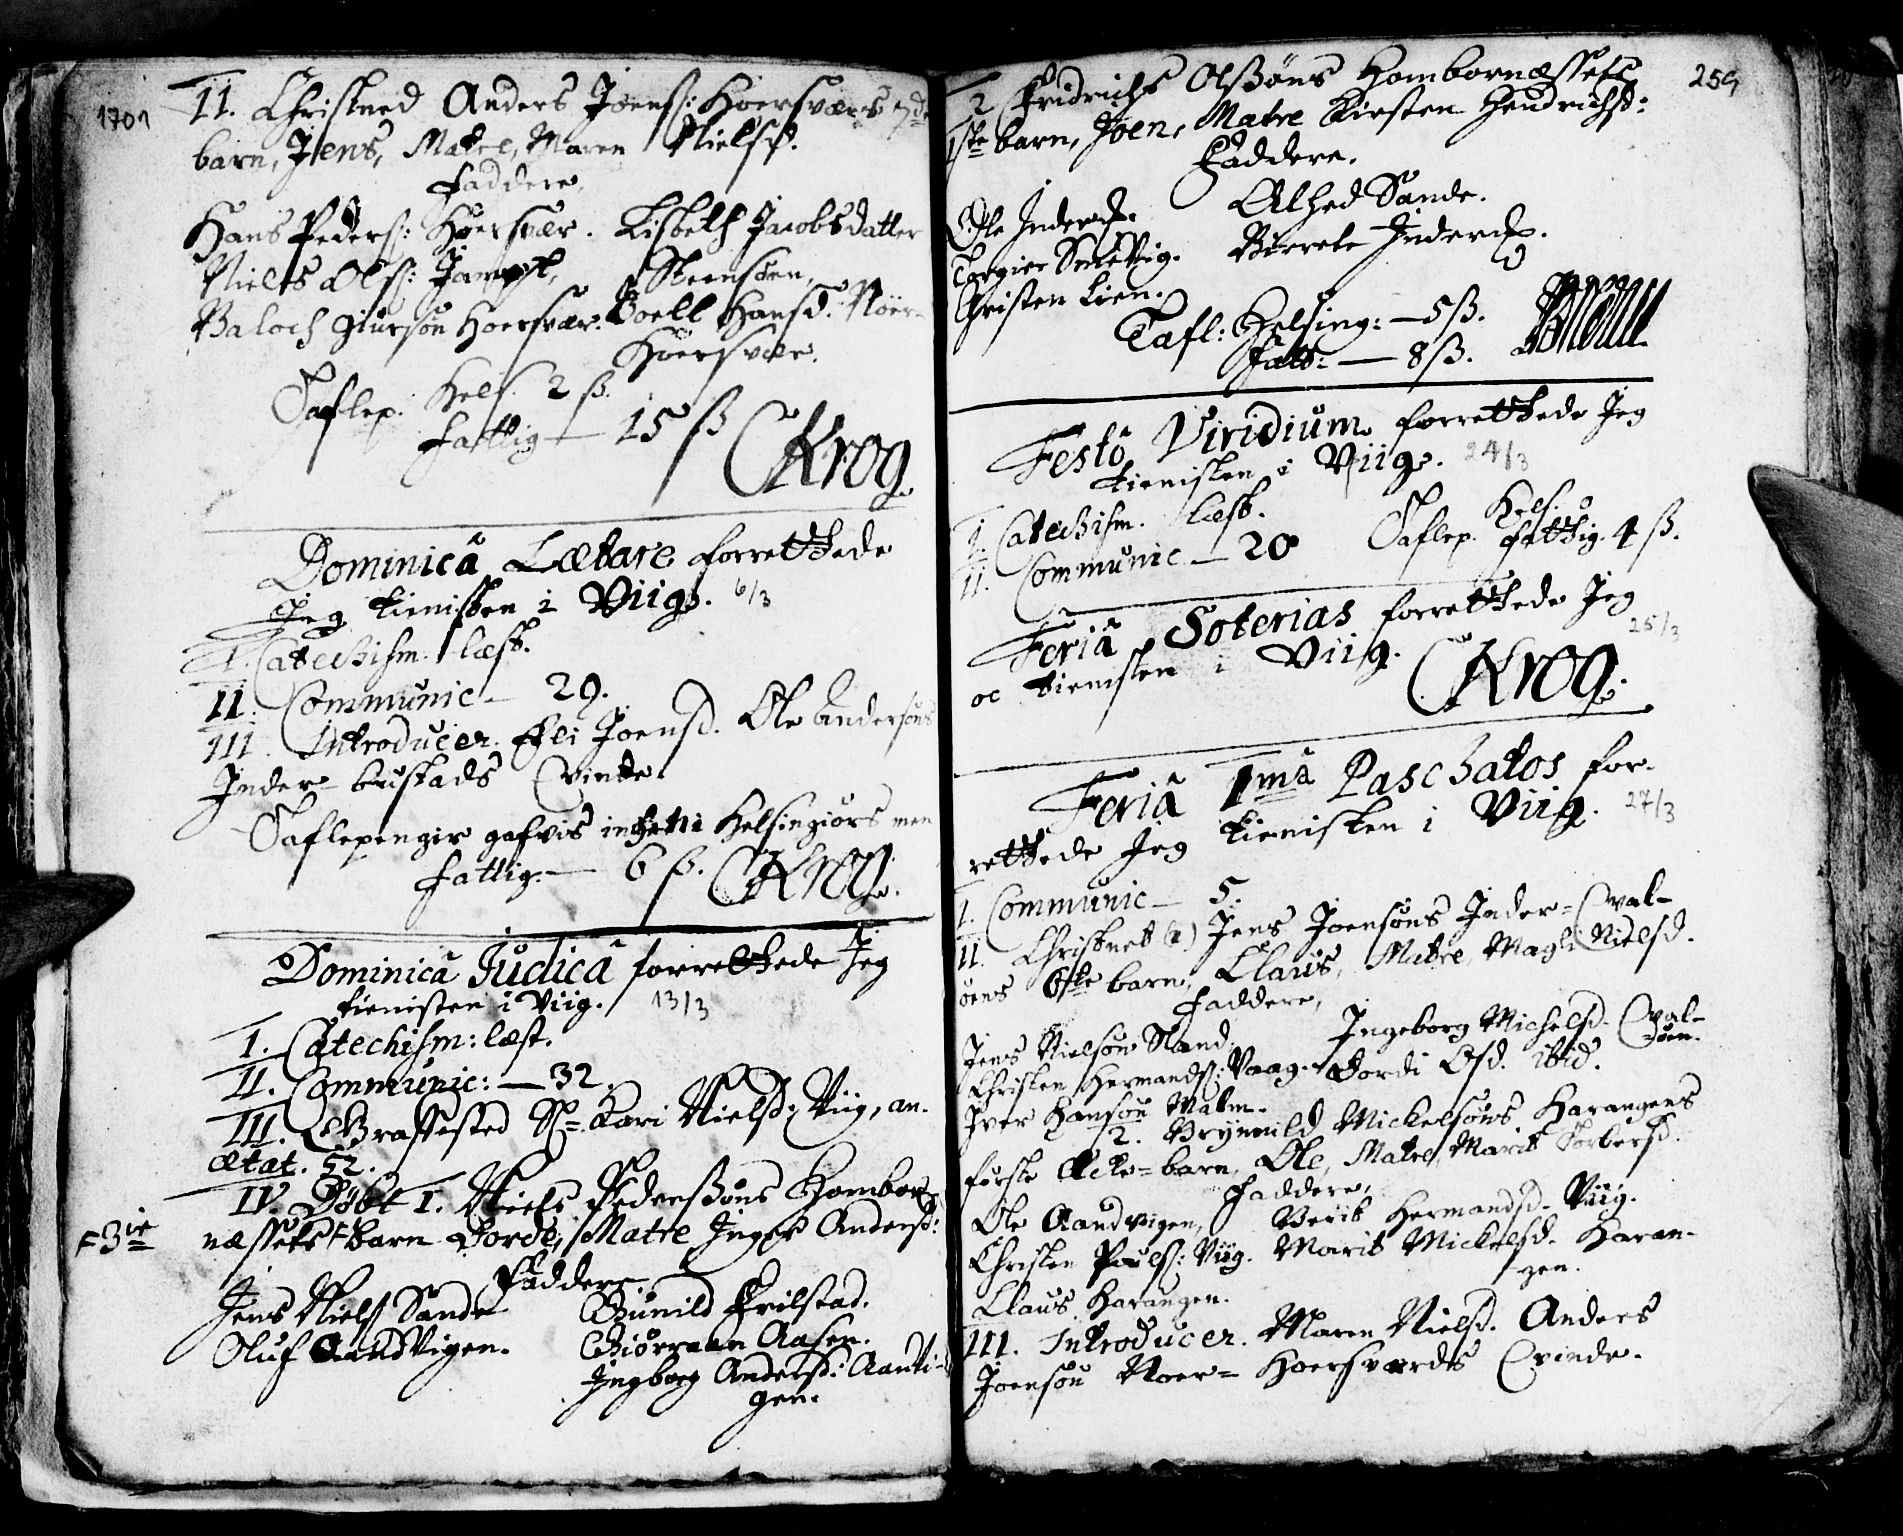 1701
II. Christned Anders Joens: Hoersværs 7de
barn, Jens, Matre, Maren Nielsd.
Faddere,
Hans Peders: Hoersvær. Lisbeth Jacobsdatter
Niels Ols: Steensöen,
Baloch Giursön Hoersvær. Boell Hansd. Nöer-
Hoersvær.
Taflep. Hels. 2 ß.
fattig — 15 ß CKrog.
Dominicâ Lætare forrettede
Jeg tienisten i Viig. 6/3
I. Catechism. læst.
II. Communic — 29.
III. Introducer. Eli Joensd. Ole Andersöns
Inder-bustads Qvinde.
Taflepenger gafvis intet i Helsingiörs men
fattig. — 6 ß. CKrog.
Dominicâ Judicâ forrettede Jeg
tienisten i Viig. 13/3
I. Catechism: læst.
II. Communic: — 32.
III. Graffested Sl: Kari Nielsd: Viig, an.
ætat. 52.
IV. Döbt 1. Niels Pederssöns Hombor-
F 3ie næssets F barn Dorde, Matre Inger Andersd:
Faddere
Jens Niels Sande Gunild Erilstad.
Oluf Aandvigen. Giörraan Aasen.
Ingborg Andersd: Aanvi-
gen.
259
2 Fridrichs Olssöns Hombornæssets
1ste barn, Joen, Matre Kirsten Hendrichsd:
Faddere.
Ole Alhed Sande.
Torgier Smevig. Birrete
Christen Lien.
Tafl: Helsing: — 5 ß.
Fatt: — 8 ß.
Festô Viridium forrettede Jeg
tienisten i Viig. 24/3
I. Catechism. læst. Hels.
II. Communic — 20 Taflep. fattig. 4 ß.
Feriâ Soterias forrettede Jeg
oc tienisten i Viig. 25/3
CKrog.
Feriâ 1mâ Paschatos for-
rettede Jeg tienisten i Viig. 27/3
I. Communic — 5.
II. Christnet (1.) Jens Joensöns Inder-Qval-
öens 6te barn, Claus, Matre, Magli Nielsd.
Faddere,
Jens Nielsön Sand. Ingeborg Michelsd. Qval-
öen.
Christen Hermands: Vaag. Dordi Olsd. ibid.
Iver Hansön Malm.
2. Brynnild Mickelsöns Harangens
förste Ecte-barn, Ole, Matre, Marit Torbersd.
Faddere,
Ole Aandvigen, Berit Hermandsd. Viig.
Christen Pouls: Viig. Marit Mickelsd. Haran-
gen.
Claus Harangen.
III. Introducer. Maren Nielsd. Anders
Joensön Noer-Hoersværds Qvinde.